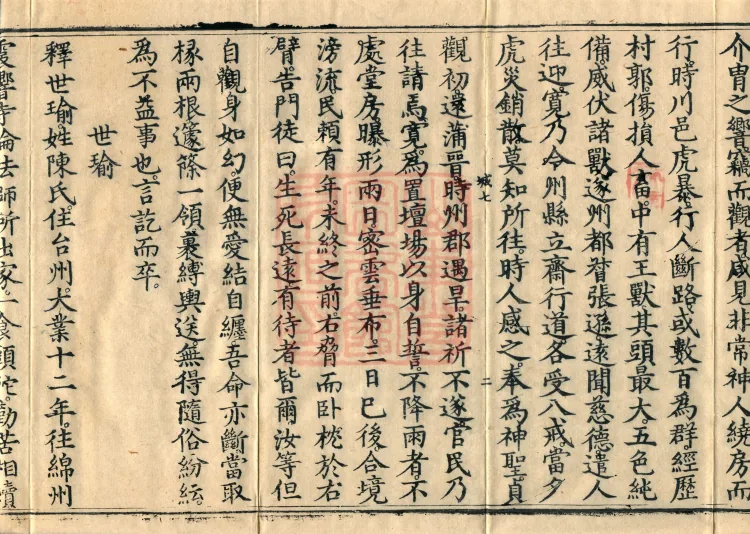 介冑之響竊而觀者咸見非常神人繞房而
行。時川邑虎暴。行人斷路。或數百為群。經歷
村郭。傷損人畜。中有王獸。其頭最大。五色純
備。威伏諸獸。遂州都督張遜遠聞慈德。遣人
往迎。寬乃令州縣立齋行道各受八戒。當夕
虎災銷散。莫知所往。時人感之。奉為神聖。貞
城七
二
觀初。還蒲晉時州郡遇旱。諸祈不遂。官民乃
往請焉。寬為置壇場以身自誓。不降雨者。不
處堂房。曝形兩日。密雲垂布。三日已後。合境
滂流。民賴有年。未終之前。右脅而卧。枕於右
臂。告門徒曰。生死長遠。有待者皆爾。汝等但
自觀身如幻。便無愛結自纏。吾命亦斷。當取
椽兩根籧篨一領。裹縛輿送。無得隨俗紛紜。
為不益事也。言訖而卒。
世瑜
釋世瑜。姓陳氏。住台州。大業十二年。往綿州
震響寺倫法師所出家。一食頭陀。勤苦相續